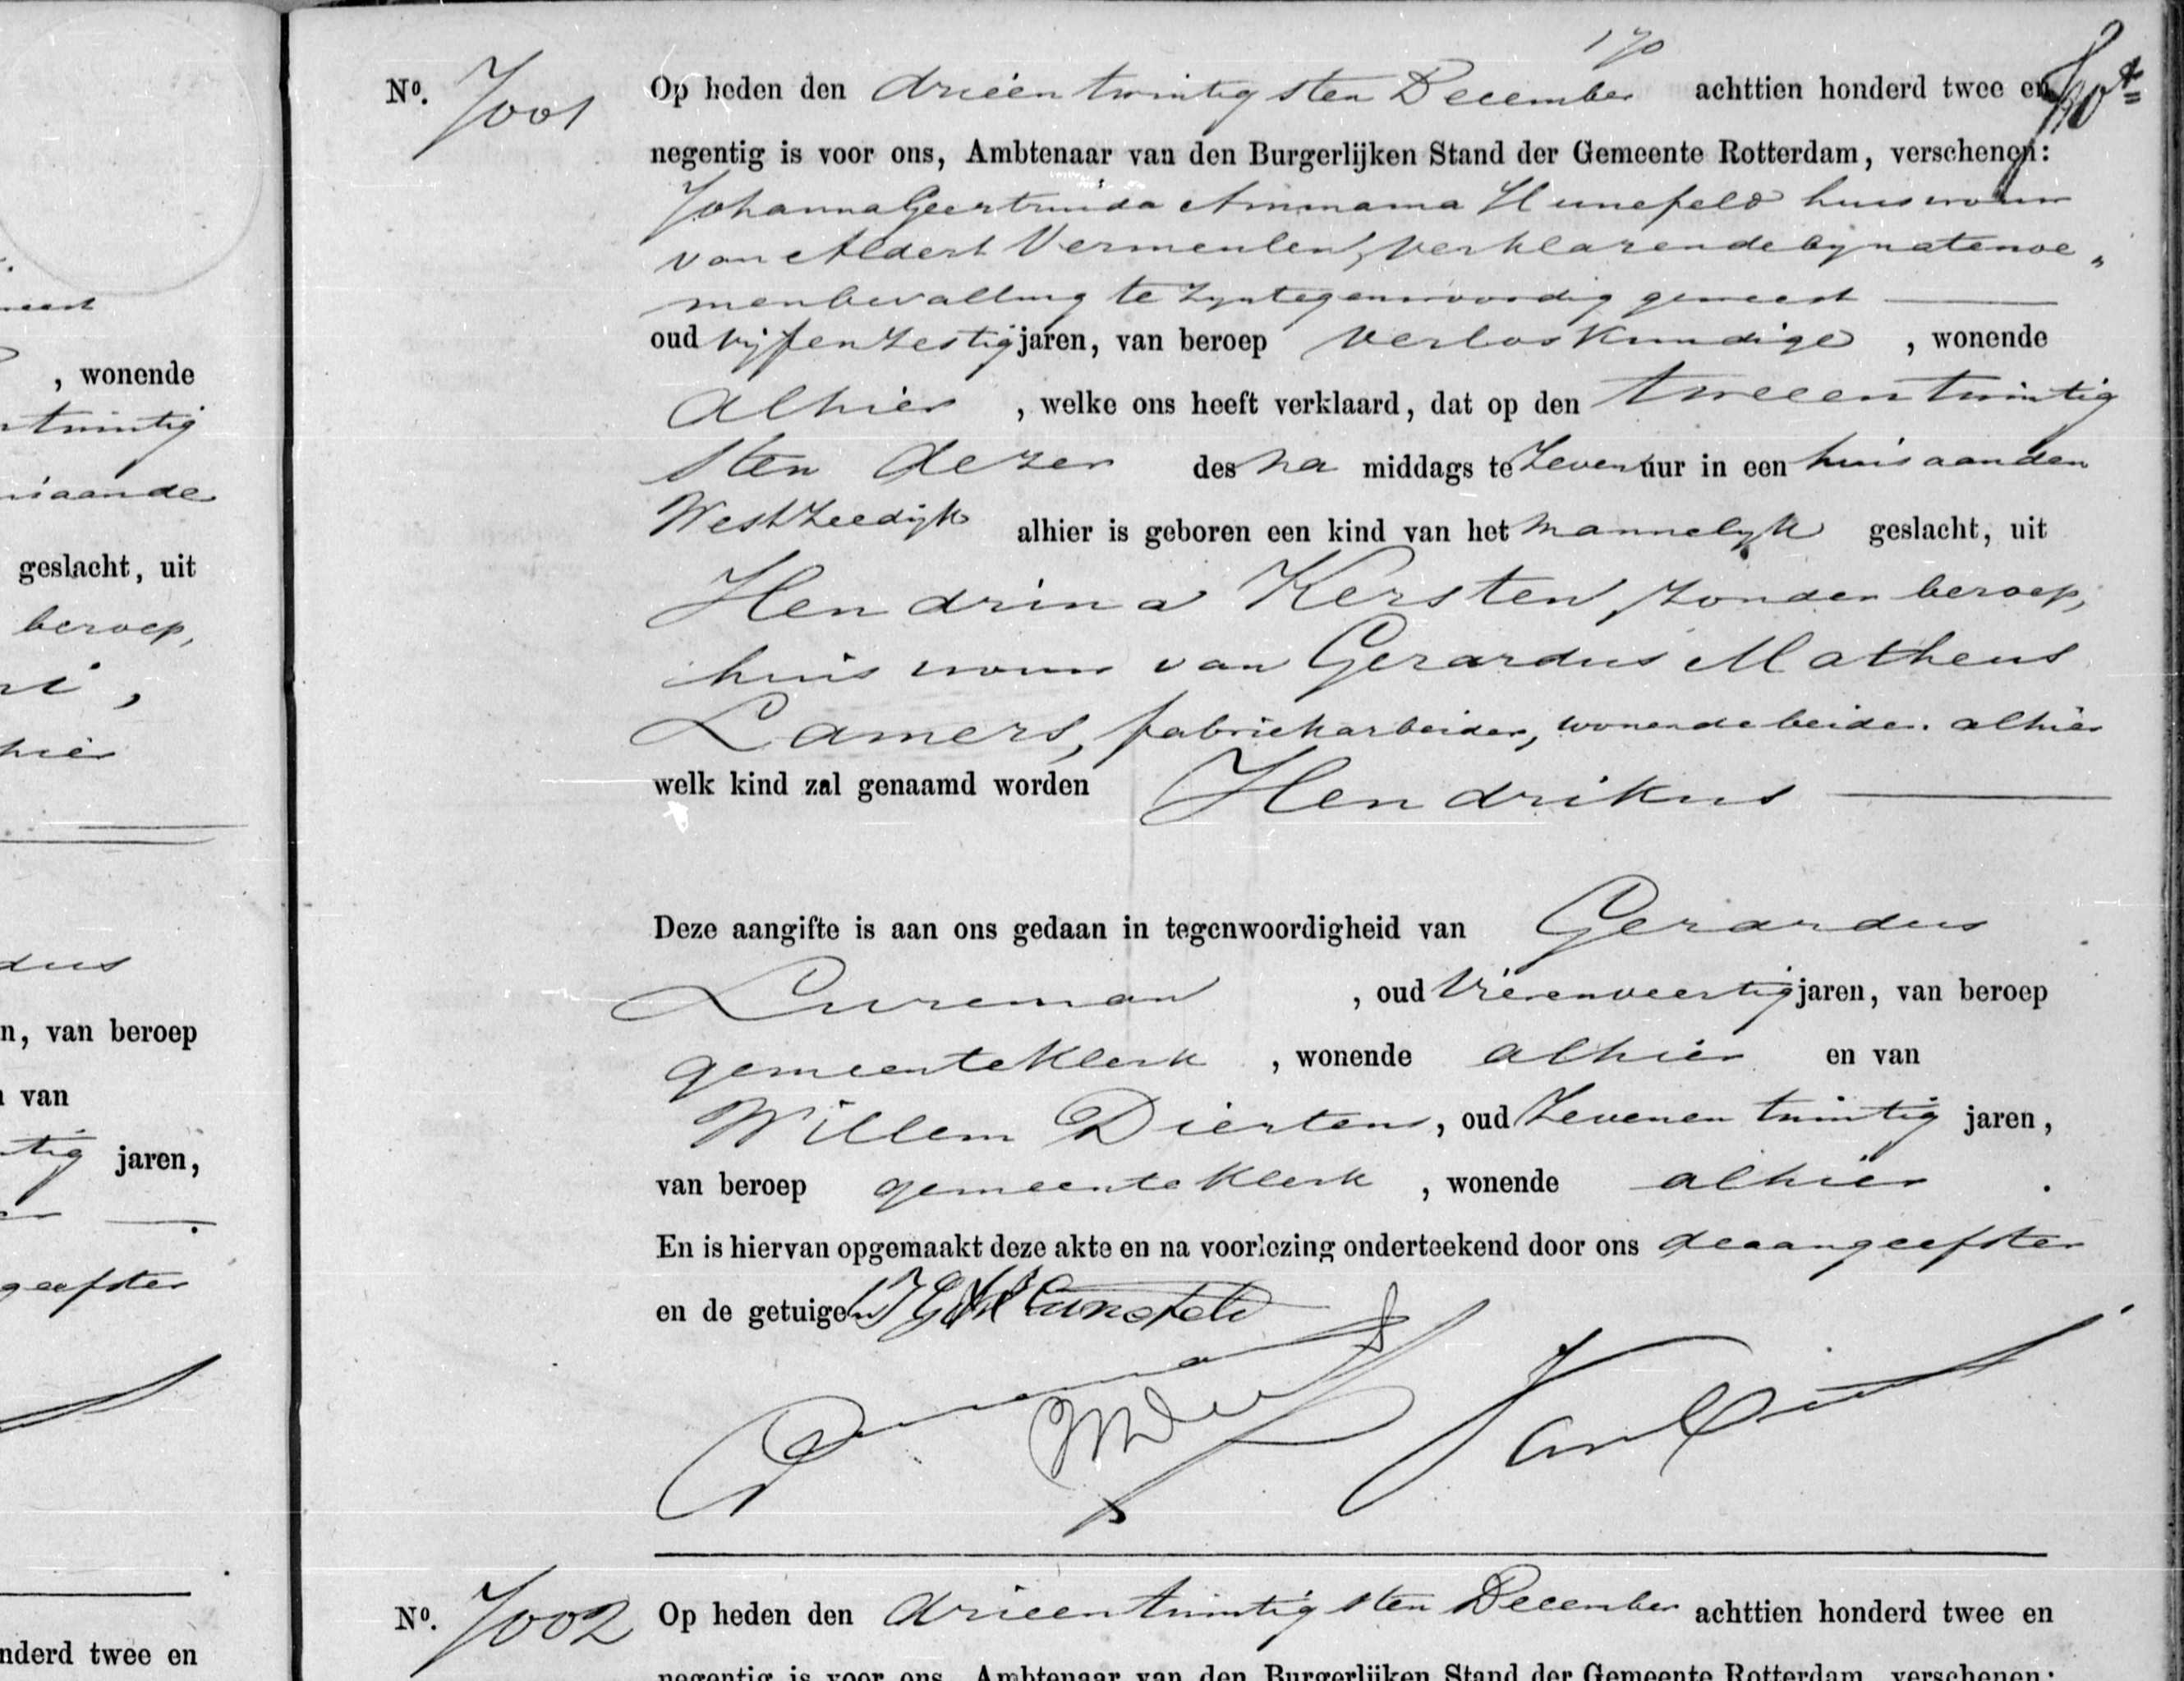 meest
, wonende
twintig
aande
geslacht, uit
beroep,
hier
dus
n, van beroep
van
tig jaren,
geefster
nderd twee en
170
No. 7001 Op heden den drieentwintigsten December achttien honderd twee en
negentig is voor ons, Ambtenaar van den Burgerlijken Stand der Gemeente Rotterdam, verschenen:
Johanna Geertruida Ammama Hunefeld huisvrouw
van Aldert Vermeulen, verklarende by natenoe„
men bevalling te zyn tegenwoordig geweest
oud vijfenzestig jaren, van beroep verloskundige , wonende
alhier , welke ons heeft verklaard, dat op den tweeentwintig
sten dezer des na middags te zeven uur in een huis aan den
Westzeedijk alhier is geboren een kind van het mannelyk geslacht, uit
Hendrina Kersten, zonder beroep,
huisvrouw van Gerardus Matheus
Lamers, fabriekarbeider, wonende beiden alhier
welk kind zal genaamd worden Hendrikus
Deze aangifte is aan ons gedaan in tegenwoordigheid van Gerardus
Lureman , oud vierenveertig jaren, van beroep
gemeenteklerk , wonende alhier en van
Willem Diertens, oud zevenentwintig jaren,
van beroep gemeenteklerk , wonende alhier .
En is hiervan opgemaakt deze akte en na voorlezing onderteekend door ons de aangeefster
en de getuigen
No. 7002 Op heden den drieentwintigsten December achttien honderd twee en
negentig is voor ons, Ambtenaar van den Burgerlijken Stand der Gemeente Rotterdam, verschenen: